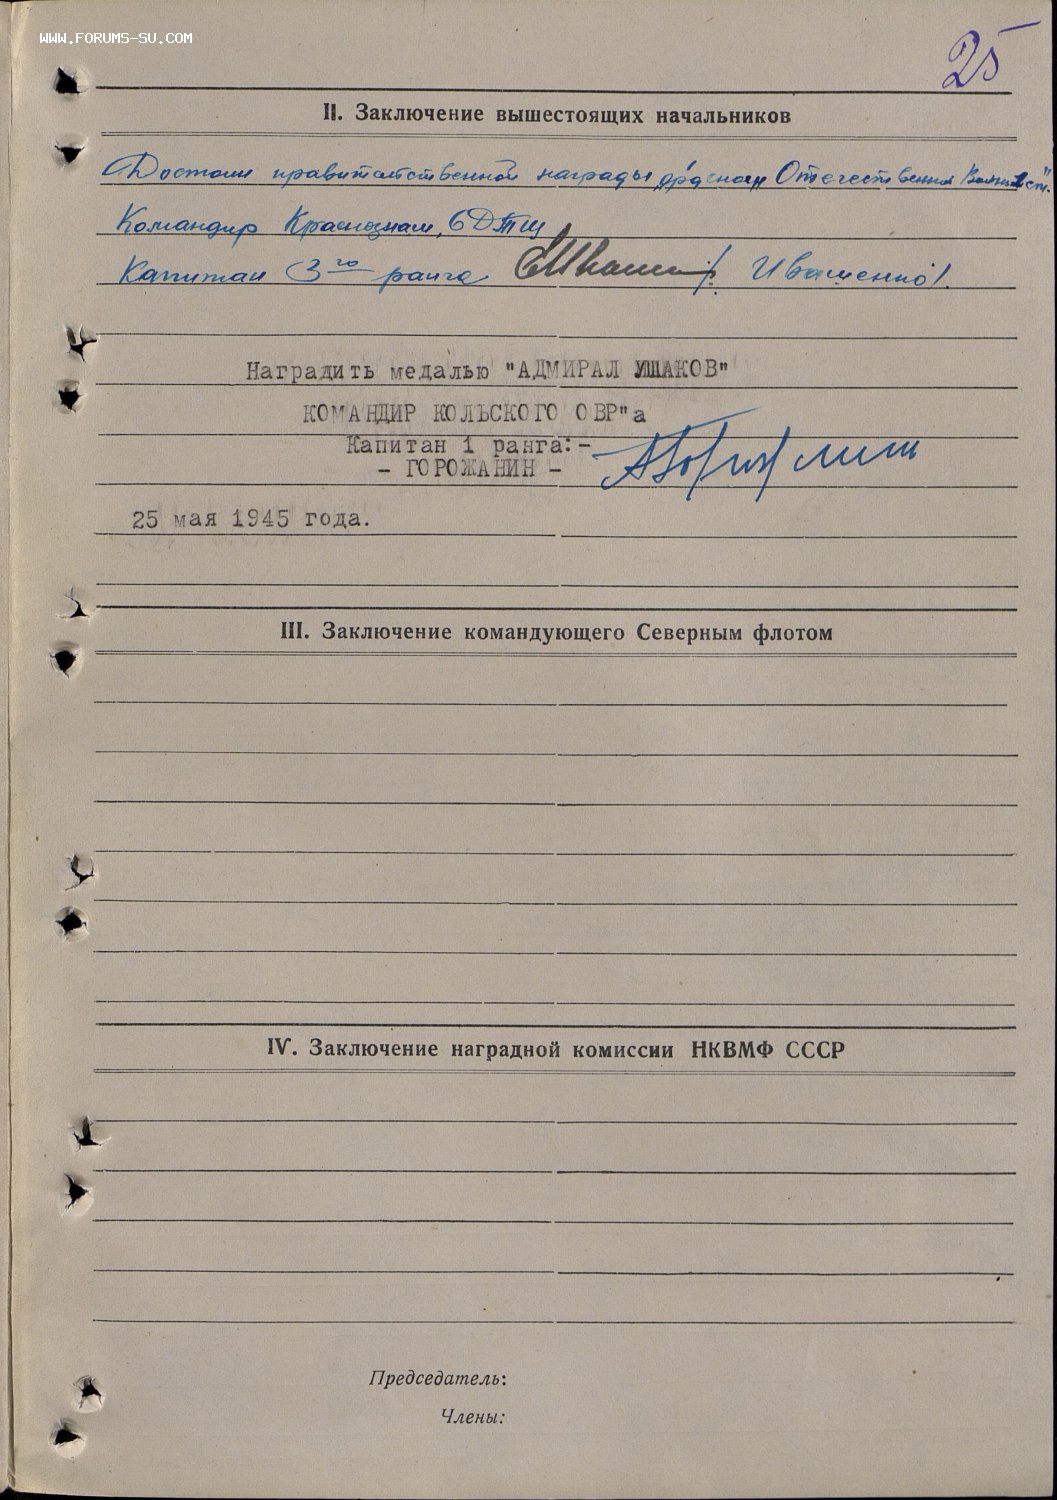 WWW.FORUMS-SU.COM
25
II. Заключение вышестоящих начальников
Достоин правительственной награды орденом „Отечественная Война 1 ст."
Командир Краснознам. 6 ДТЩ
Капитан 3го ранга /Иващенко/.
Наградить медалью "АДМИРАЛ УШАКОВ"
КОМАНДИР КОЛЬСКОГО ОВР"а
Капитан 1 ранга:-
- ГОРОЖАНИН -
25 мая 1945 года.
III. Заключение командующего Северным флотом
IV. Заключение наградной комиссии НКВМФ СССР
Председатель:
Члены: